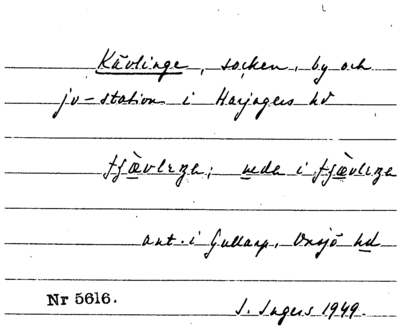 Kävlinge, socken, by och
jv-station i Harjagers hd
tʃævleŋa; neda i tʃævleŋa
ant. i Gullarp, Onsjö hd
Nr 5616.
S. Ingers 1949.